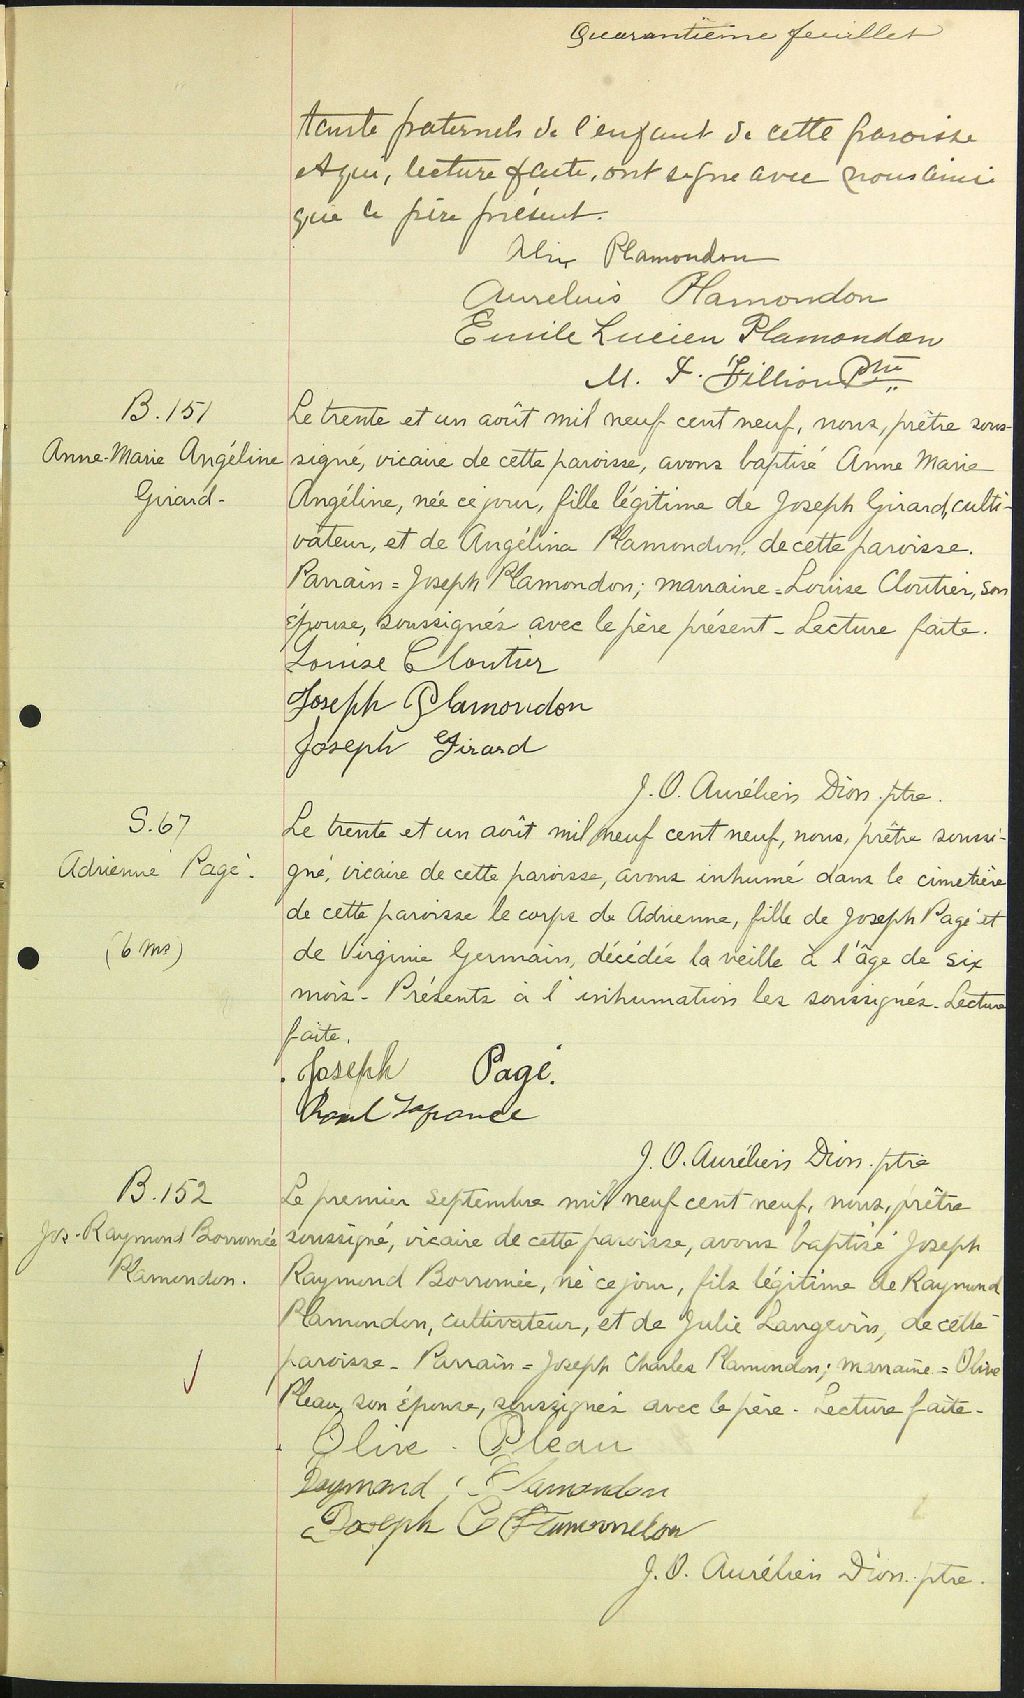 Quarantième feuillet
tante paternels de l'enfant de cette paroisse
et qui, lecture faite, ont signé avec nous ainsi
que le père présent.
Plamondon
Aurelius Plamondon
Emile Lucien Plamondon
M. F. Fillion Ptre
B. 151
Anne-Marie Angéline
Girard -
Le trente et un août mil neuf cent neuf, nous, prêtre sous-
signé, vicaire de cette paroisse, avons baptisé Anne Marie
Angéline, née ce jour, fille légitime de Joseph Girard, culti-
vateur, et de Angélina Plamondon, de cette paroisse.
Parrain = Joseph Plamondon; marraine = Louise Cloutier, son
épouse, soussignés avec le père présent - Lecture faite.
Louise Cloutier
Joseph Plamondon
Joseph Girard
J. O. Aurélien Dion. ptre.
S. 67
Adrienne Pagé.
(6 ms)
Le trente et un août mil neuf cent neuf, nous, prêtre soussi-
gné, vicaire de cette paroisse, avons inhumé dans le cimetière
de cette paroisse le corps de Adrienne, fille de Joseph Pagé et
de Virginie Germain, décédée la veille à l'âge de six
mois - Présents à l'inhumation les soussignés. Lecture
faite.
Joseph Pagé.
J. O. Aurélien Dion. ptre
B. 152
Jos-Raymond Borromée
Plamondon.
Le premier septembre mil neuf cent neuf, nous, prêtre
soussigné, vicaire de cette paroisse, avons baptisé Joseph
Raymond Borromée, né ce jour, fils légitime de Raymond
Plamondon, cultivateur, et de Julie Langevin, de cette
paroisse - Parrain = Joseph Charles Plamondon; marraine = Olive
Pleau, son épouse, soussignés avec le père - Lecture faite -
Olive Pleau
Raymond Plamondon
Joseph C Plamondon
J. O. Aurélien Dion. ptre.